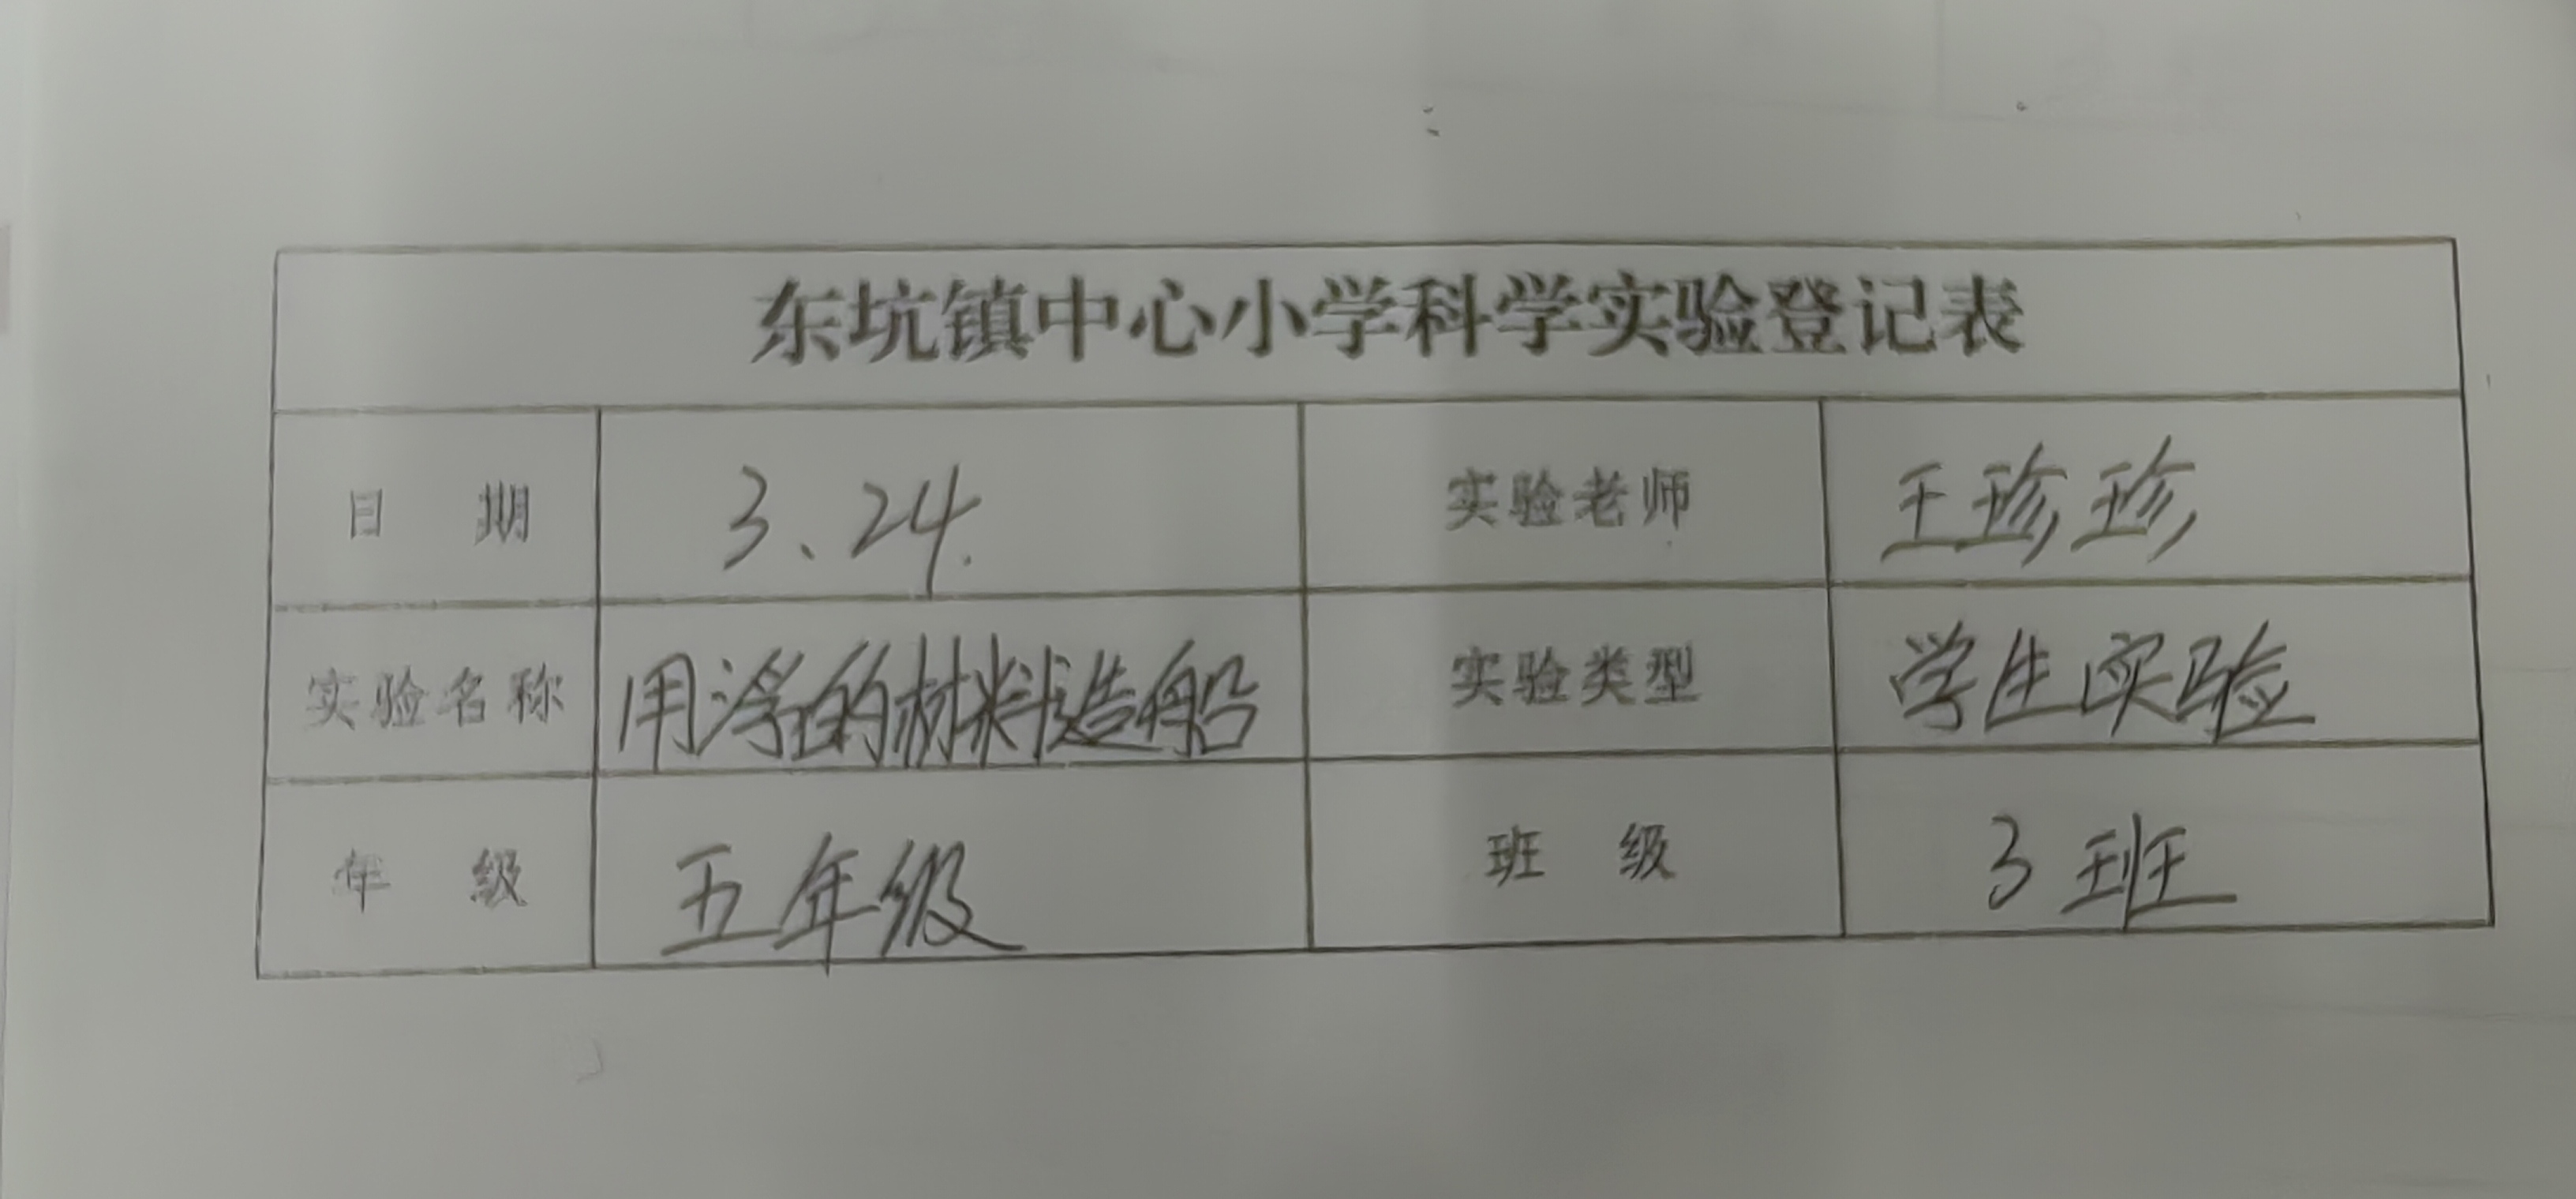 东坑镇中心小学科学实验登记表
日 期 3、24. 实验老师 王珍珍
实验名称 用浮的材料造船 实验类型 学生实验
年 级 五年级 班 级 3班